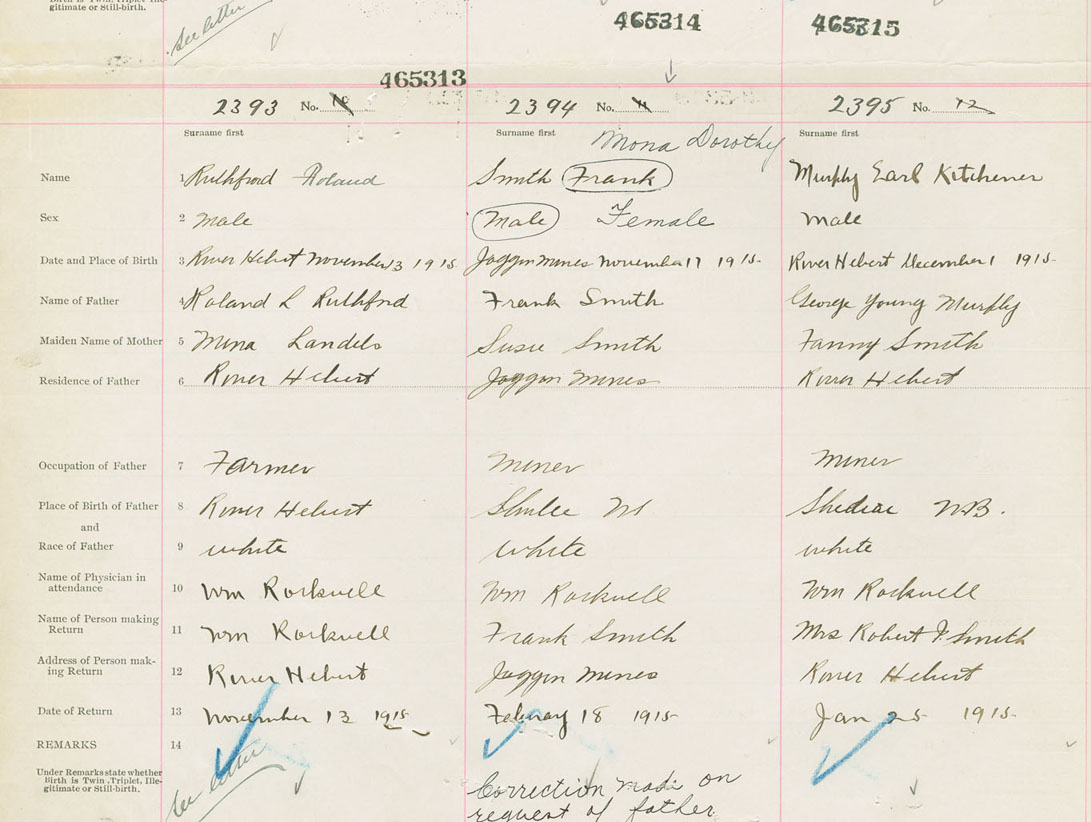 Birth is Twin, Triplet, Ille-
gitimate or Still-birth.
See letter
465314
465315
465313
2393 No.
2394 No. 11
2395 No. 12
Surname first
Surname first
Surname first
Mona Dorothy
Name 1 Ruthford Roland
Smith Frank
Murphy Earl Kitchener
Sex 2 Male
Male Female
Male
Date and Place of Birth 3 River Hebert November 3 1915
Joggin Mines November 17 1915
River Hebert December 1 1915
Name of Father 4 Roland L Ruthford
Frank Smith
George Young Murphy
Maiden Name of Mother 5 Mina Landels
Susie Smith
Fanny Smith
Residence of Father 6 River Hebert
Joggin Mines
River Hebert
Occupation of Father 7 Farmer
Miner
Miner
Place of Birth of Father 8 River Hebert
Shulee NS
Shediac NB.
and
Race of Father 9 white
white
white
Name of Physician in
attendance 10 Wm Rockwell
Wm Rockwell
Wm Rockwell
Name of Person making
Return 11 Wm Rockwell
Frank Smith
Mrs Robert F. Smith
Address of Person mak-
ing Return 12 River Hebert
Joggin Mines
River Hebert
Date of Return 13 November 13 1915
Febuary 18 1915
Jan 25 1915
REMARKS 14
Under Remarks state whether
Birth is Twin, Triplet, Ille-
gitimate or Still-birth.
See letter
Correction made on
request of father